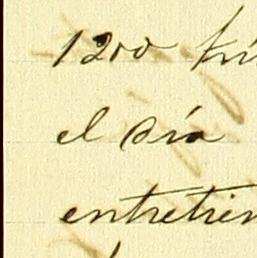 1200
el día
entretien